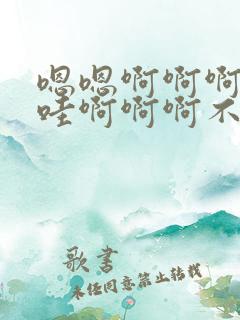 嗯嗯啊啊啊
哇啊啊啊不
歌书
未经同意禁止转载